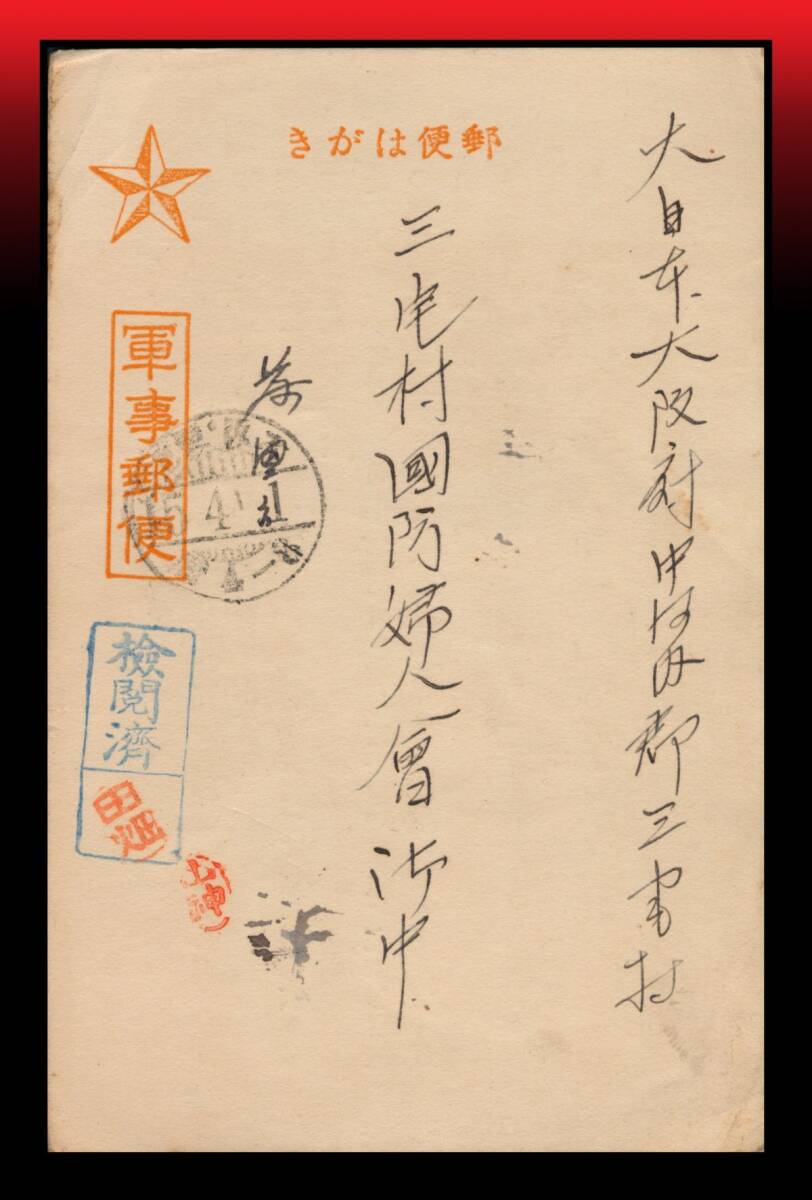 郵便はがき
大日本大阪府中河内郡三宅村
三宅村國防婦人會御中
軍事郵便
檢閲濟
田畑